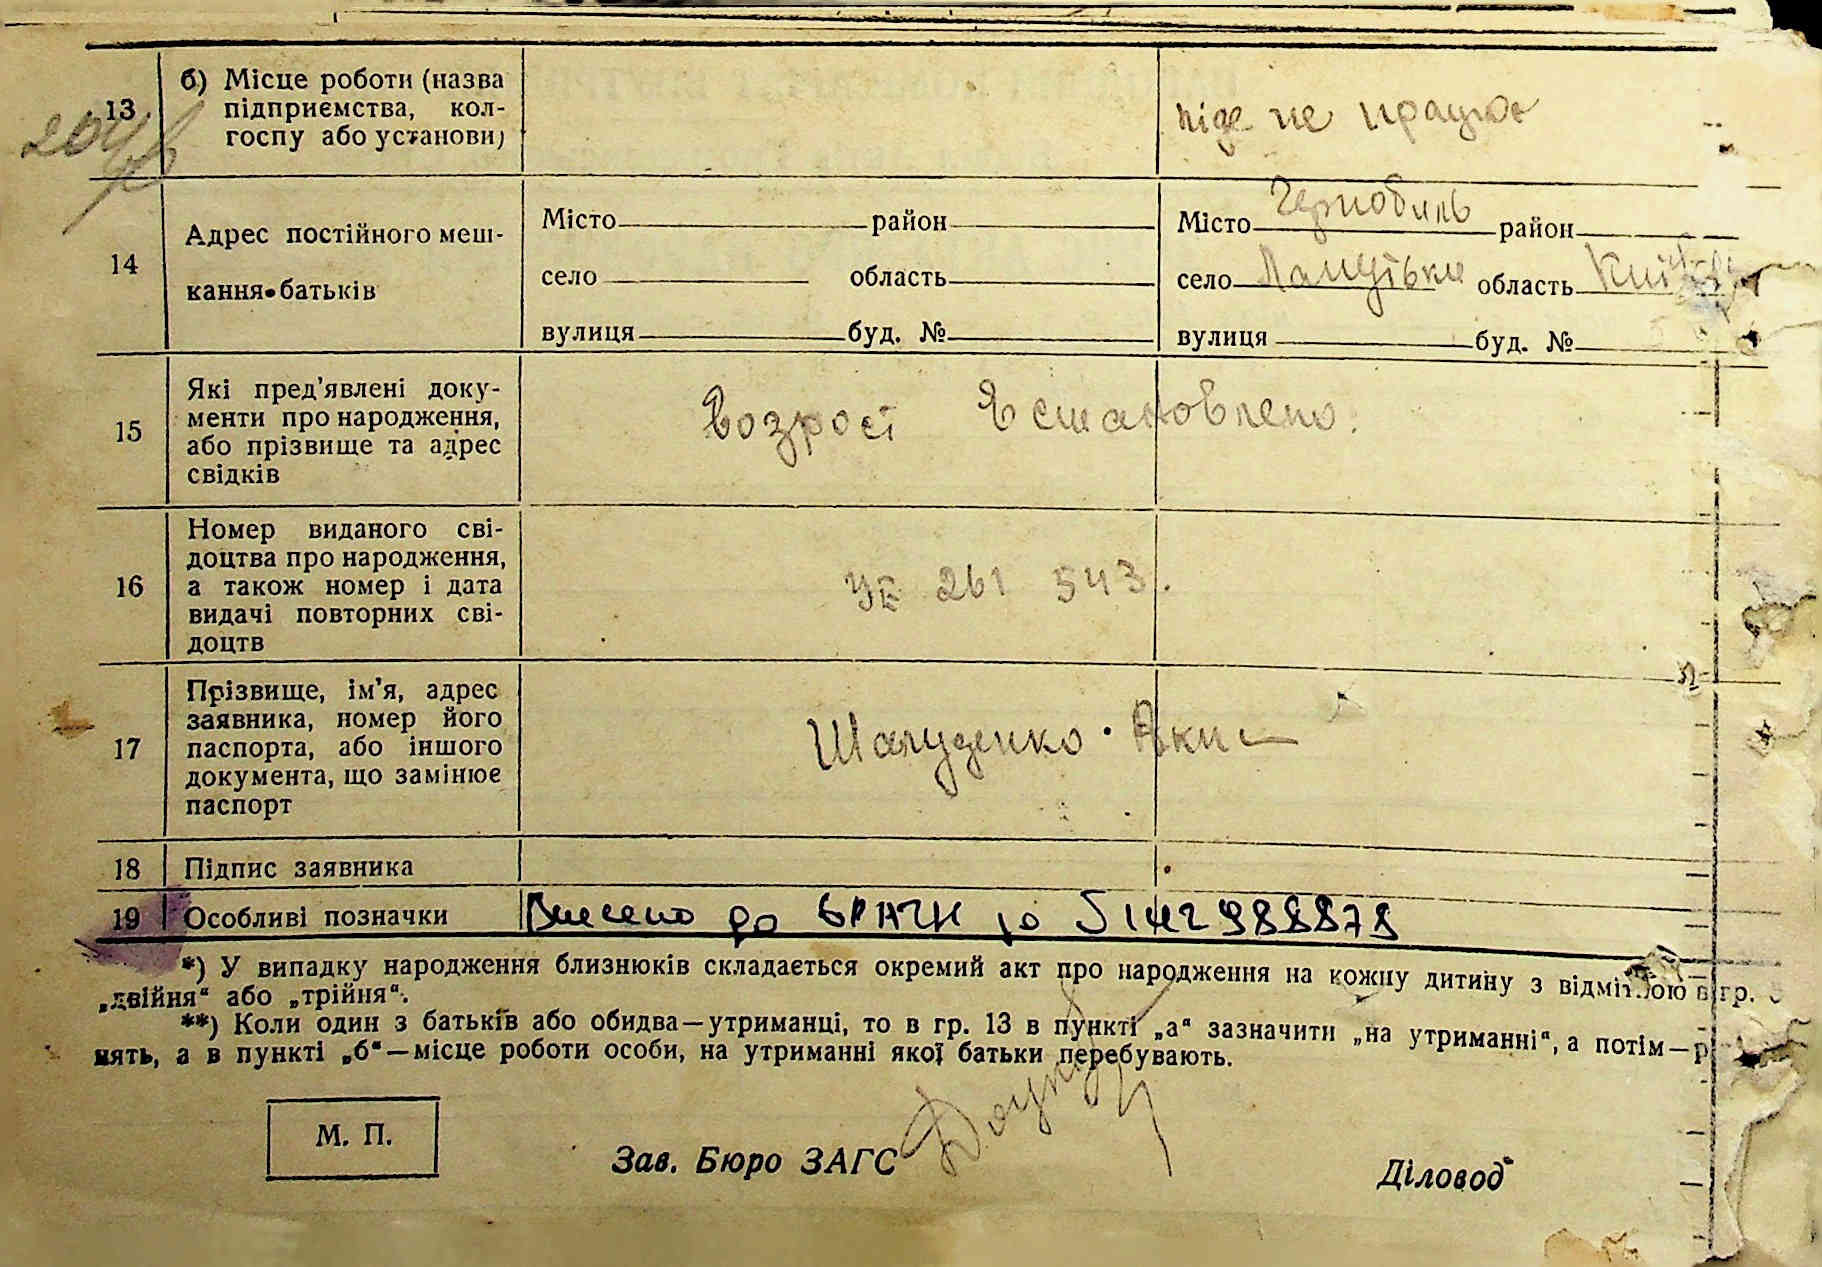 13
б) Місце роботи (назва
підприємства, кол-
госпу або установи)
ніде не працює
14
Адрес постійного меш-
кання батьків
Місто район
село область
вулиця буд. №
Місто Чернобиль район
село область
вулиця буд. №
15
Які пред’явлені доку-
менти про народження,
або прізвище та адрес
свідків
возрост встановлено.
16
Номер виданого сві-
доцтва про народження,
а також номер і дата
видачі повторних сві-
доцтв
261 543.
17
Прізвище, ім’я, адрес
заявника, номер його
паспорта, або іншого
документа, що замінює
паспорт
Шалуденко
18
Підпис заявника
19
Особливі позначки
Внесено до
*) У випадку народження близнюків складається окремий акт про народження на кожну дитину з відміткою в гр.
„двійня“ або „трійня“.
**) Коли один з батьків або обидва—утриманці, то в гр. 13 в пункті „а“ зазначити „на утриманні“, а потім—
нять, а в пункті „б“—місце роботи особи, на утриманні якої батьки перебувають.
М. П.
Зав. Бюро ЗАГС
Діловод